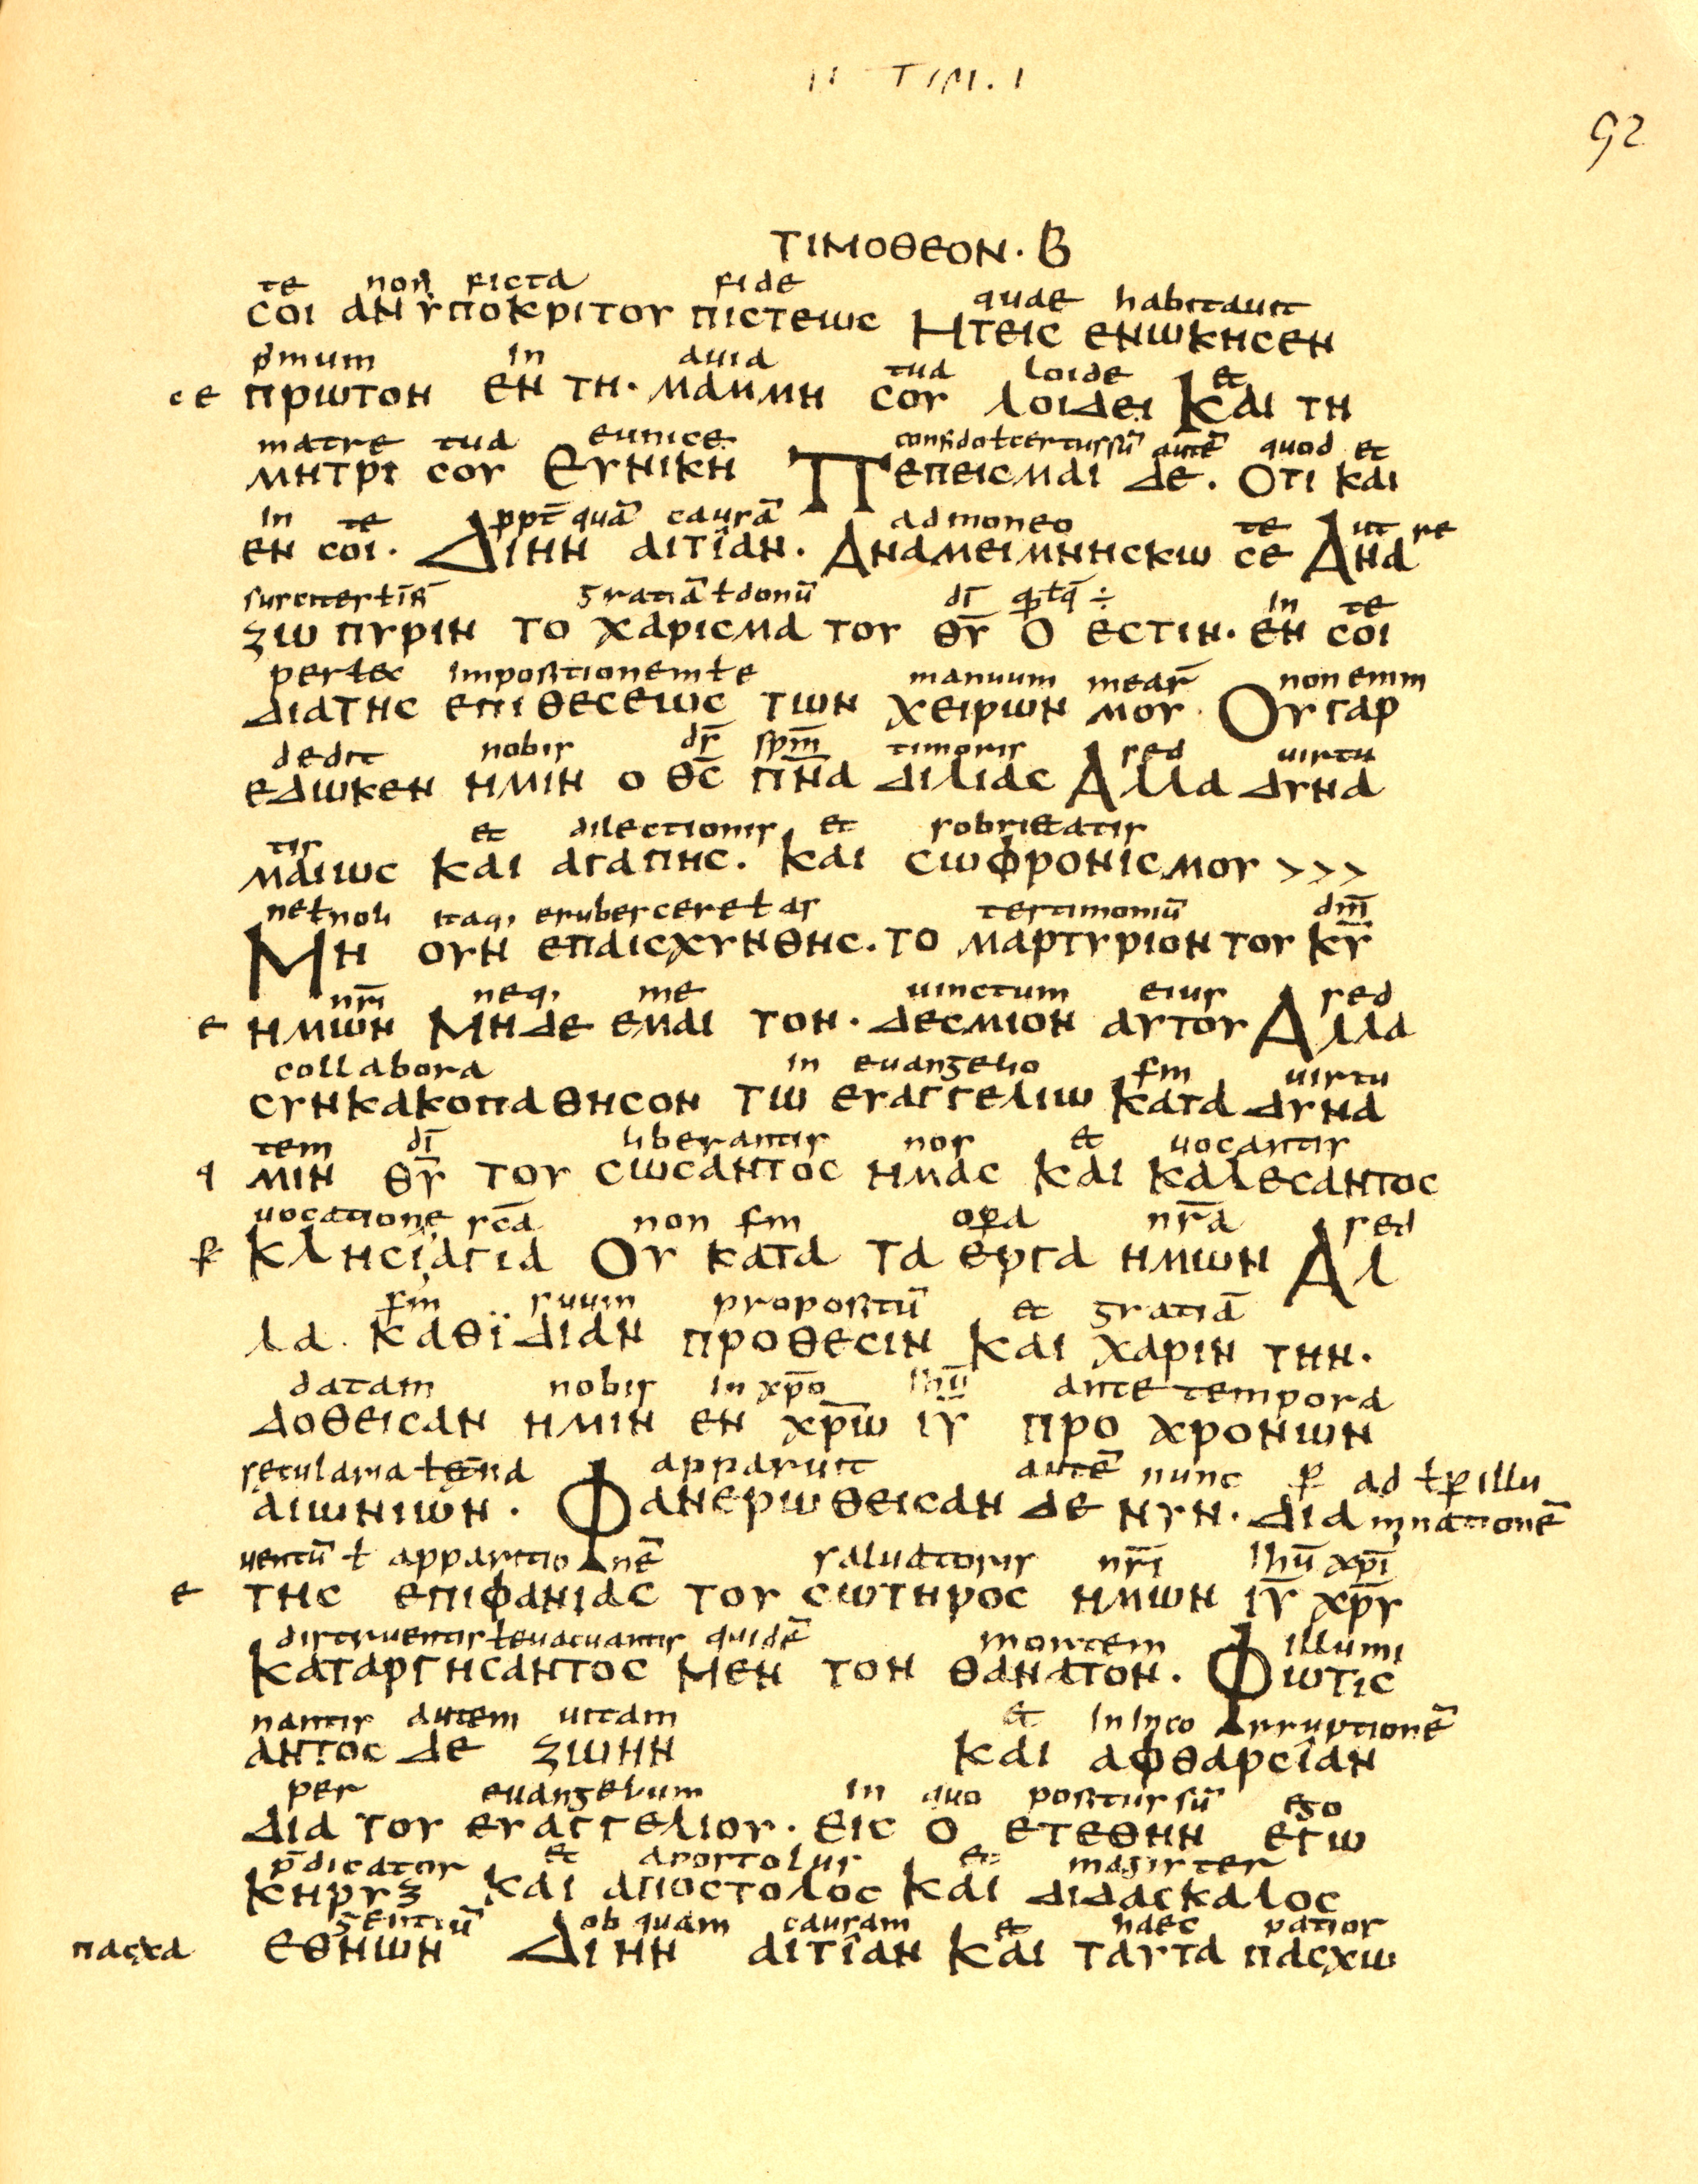 II TIM. I
92
ΤΙΜΟΘΕΟΝ · Β
te non ficta fide quae habitauit
ϲοι ανυποκριτου πιϲτεωϲ Ητειϲ ενωκηϲεν
pmum in auia tua loide et
ϲε πρωτον εν τη · μαμμη ϲου λοιδει Και τη
matre tua eunice confido ł certus sū autē quod et
μητρι ϲου Ευνικη Πεπειϲμαι δε . Οτι και
in te ppt̄ quā causā admoneo te ut re
εν ϲοι · Διην αιτιαν · Αναμειμνηϲκω ϲε Ανα
gratiā ł donū dī in te
ζωπυριν το χαριϲμα του θ̅υ̅ Ο εϲτιν · εν ϲοι
per ł ec impositionem ł e manuum mear̄ non enim
διατηϲ επιθεϲεωϲ των χειρων μου · Ου γαρ
dedit nobis dς̄ sp̄m timoris sed uirtu
εδωκεν ημιν ο θ̅ϲ̅ π̅ν̅α διλιαϲ Αλλα δυνα
tis et dilectionis et sobrietatis
μαιωϲ Και αγαπηϲ . Και ϲωφρονιϲμου >>>
ne ł noli itaq, erubescere ł as testimoniū dm̄
Μη ουν επαιϲχυνθηϲ · το μαρτυριον του κ̅υ̅
nrm̄ neq, me uinctum eius sed
ε ημων Μηδε εμαι τον · δεϲμιον αυτου Αλλα
collabora in euangelio sm uirtu
ϲυνκακοπαθηϲον τω ευαγγελιω Κατα δυνα
tem dī liberantis nos et uocantis
μιν θ̅υ̅ του ϲωϲαντοϲ ημαϲ και καλεϲαντοϲ
uocatione scā non sm opa nr̄a sed
κληϲιαγια Ου κατα τα εργα ημων Αλ
sm suum propositū et gratiā
λα . καθϊδιαν προθεϲιν Και χαριν την ·
datam nobis in xp̄o ihū ante tempora
δοθειϲαν ημιν εν χ̅ρ̅ω ι̅υ̅ προ χρονων
apparuit autē nunc p ad ł p illu
αιωνιων . Φανερωθειϲαν δε νυν · δια minationē
uentū ł apparitionē saluatoris nr̄i ihū xpī
ε τηϲ επιφανιαϲ του ϲωτηροϲ ημων ι̅υ̅ χ̅ρ̅υ̅
distruentis ł euacuantis quidē mortem illumi
Καταργηϲαντοϲ Μεν τον θανατον . Φωτιϲ
nantis autem uitam et
αντοϲ δε ζωην Και αφθαρϲιαν
per euangelium in quo positus sū ego
δια του ευαγγελιου · Ειϲ Ο ετεθην εγω
p̄dicator et apostolus et magister
Κηρυξ Και αποϲτολοϲ Και διδαϲκαλοϲ
gentiū ob quam causam et haec patior
παϲχα εθνων Διην αιτιαν Και ταυτα παϲχω